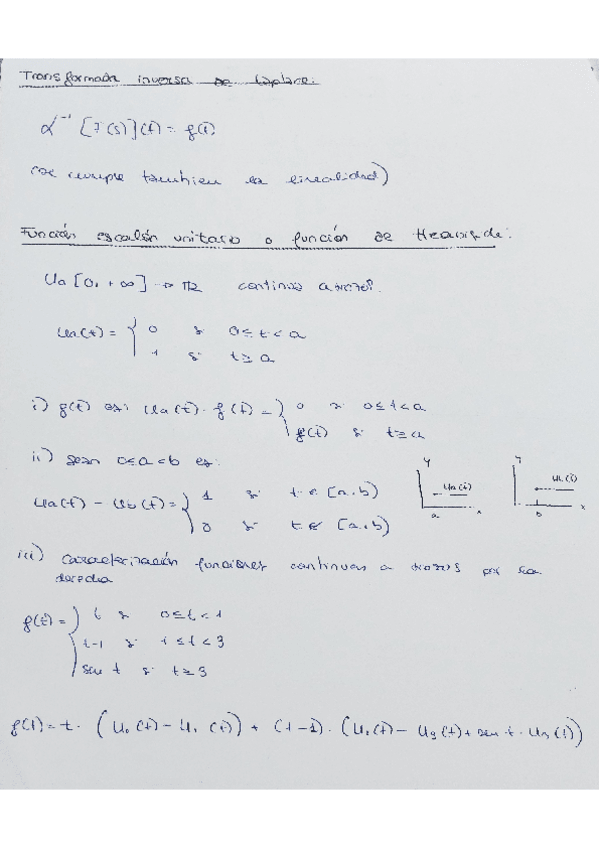 Transformada inversa de Laplace:
L⁻¹ [F(s)](t) = f(t)
(se cumple tambien la linealidad)
Función escalón unitario o función de Heaviside:
Ua [0, +∞] → R continua a trozos.
Ua(t) = { 0 si 0 ≤ t < a
1 si t ≥ a
i) f(t) es: Ua(t) · f(t) = } 0 si 0 ≤ t < a
f(t) si t ≥ a
ii) sean 0<a<b es:
Ua(t) - Ub(t) = { 1 si t ∈ [a,b)
0 si t ∉ [a,b)
y
Ua(t)
a
x
y
Ub(t)
b
x
iii) caracterización funciones continuas a trozos por la
derecha
f(t) = } t si 0 ≤ t < 1
t-1 si 1 ≤ t < 3
sen t si t ≥ 3
f(t) = t · (U₀(t) - U₁(t)) + (t-1) · (U₁(t) - U₃(t) + sen t · U₃(t))